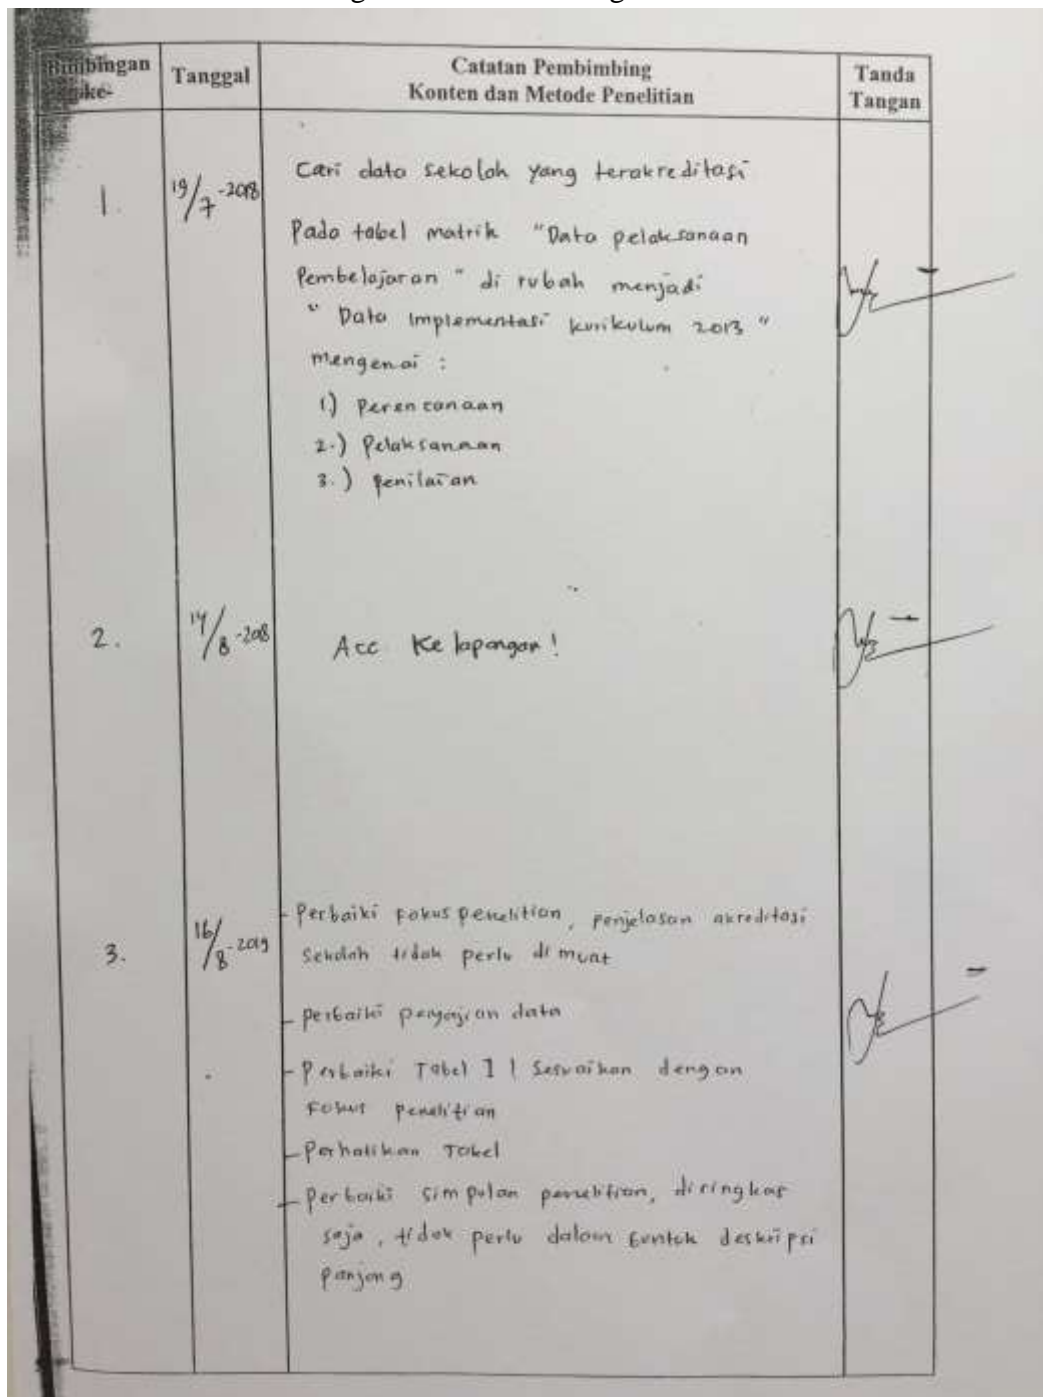 Bimbingan ke-
Tanggal
Catatan Pembimbing
Konten dan Metode Penelitian
Tanda
Tangan
1.
19/7-2018
Cari data sekolah yang terakreditasi
Pada tabel matrik "Data pelaksanaan
Pembelajaran" di rubah menjadi
" Data Implementasi kurikulum 2013 "
mengenai :
1.) Perencanaan
2.) Pelaksanaan
3.) penilaian
2.
14/8-2018
Acc Ke lapangan !
3.
16/8-2019
- Perbaiki Fokus penelitian, penjelasan akreditasi
sekolah tidak perlu di muat
- perbaiki penyajian data
- Perbaiki Tabel 1 | Sesuaikan dengan
Fokus penelitian
- Perhatikan Tabel
- Perbaiki simpulan penelitian, diringkas
saja, tidak perlu dalam bentuk deskripsi
panjang